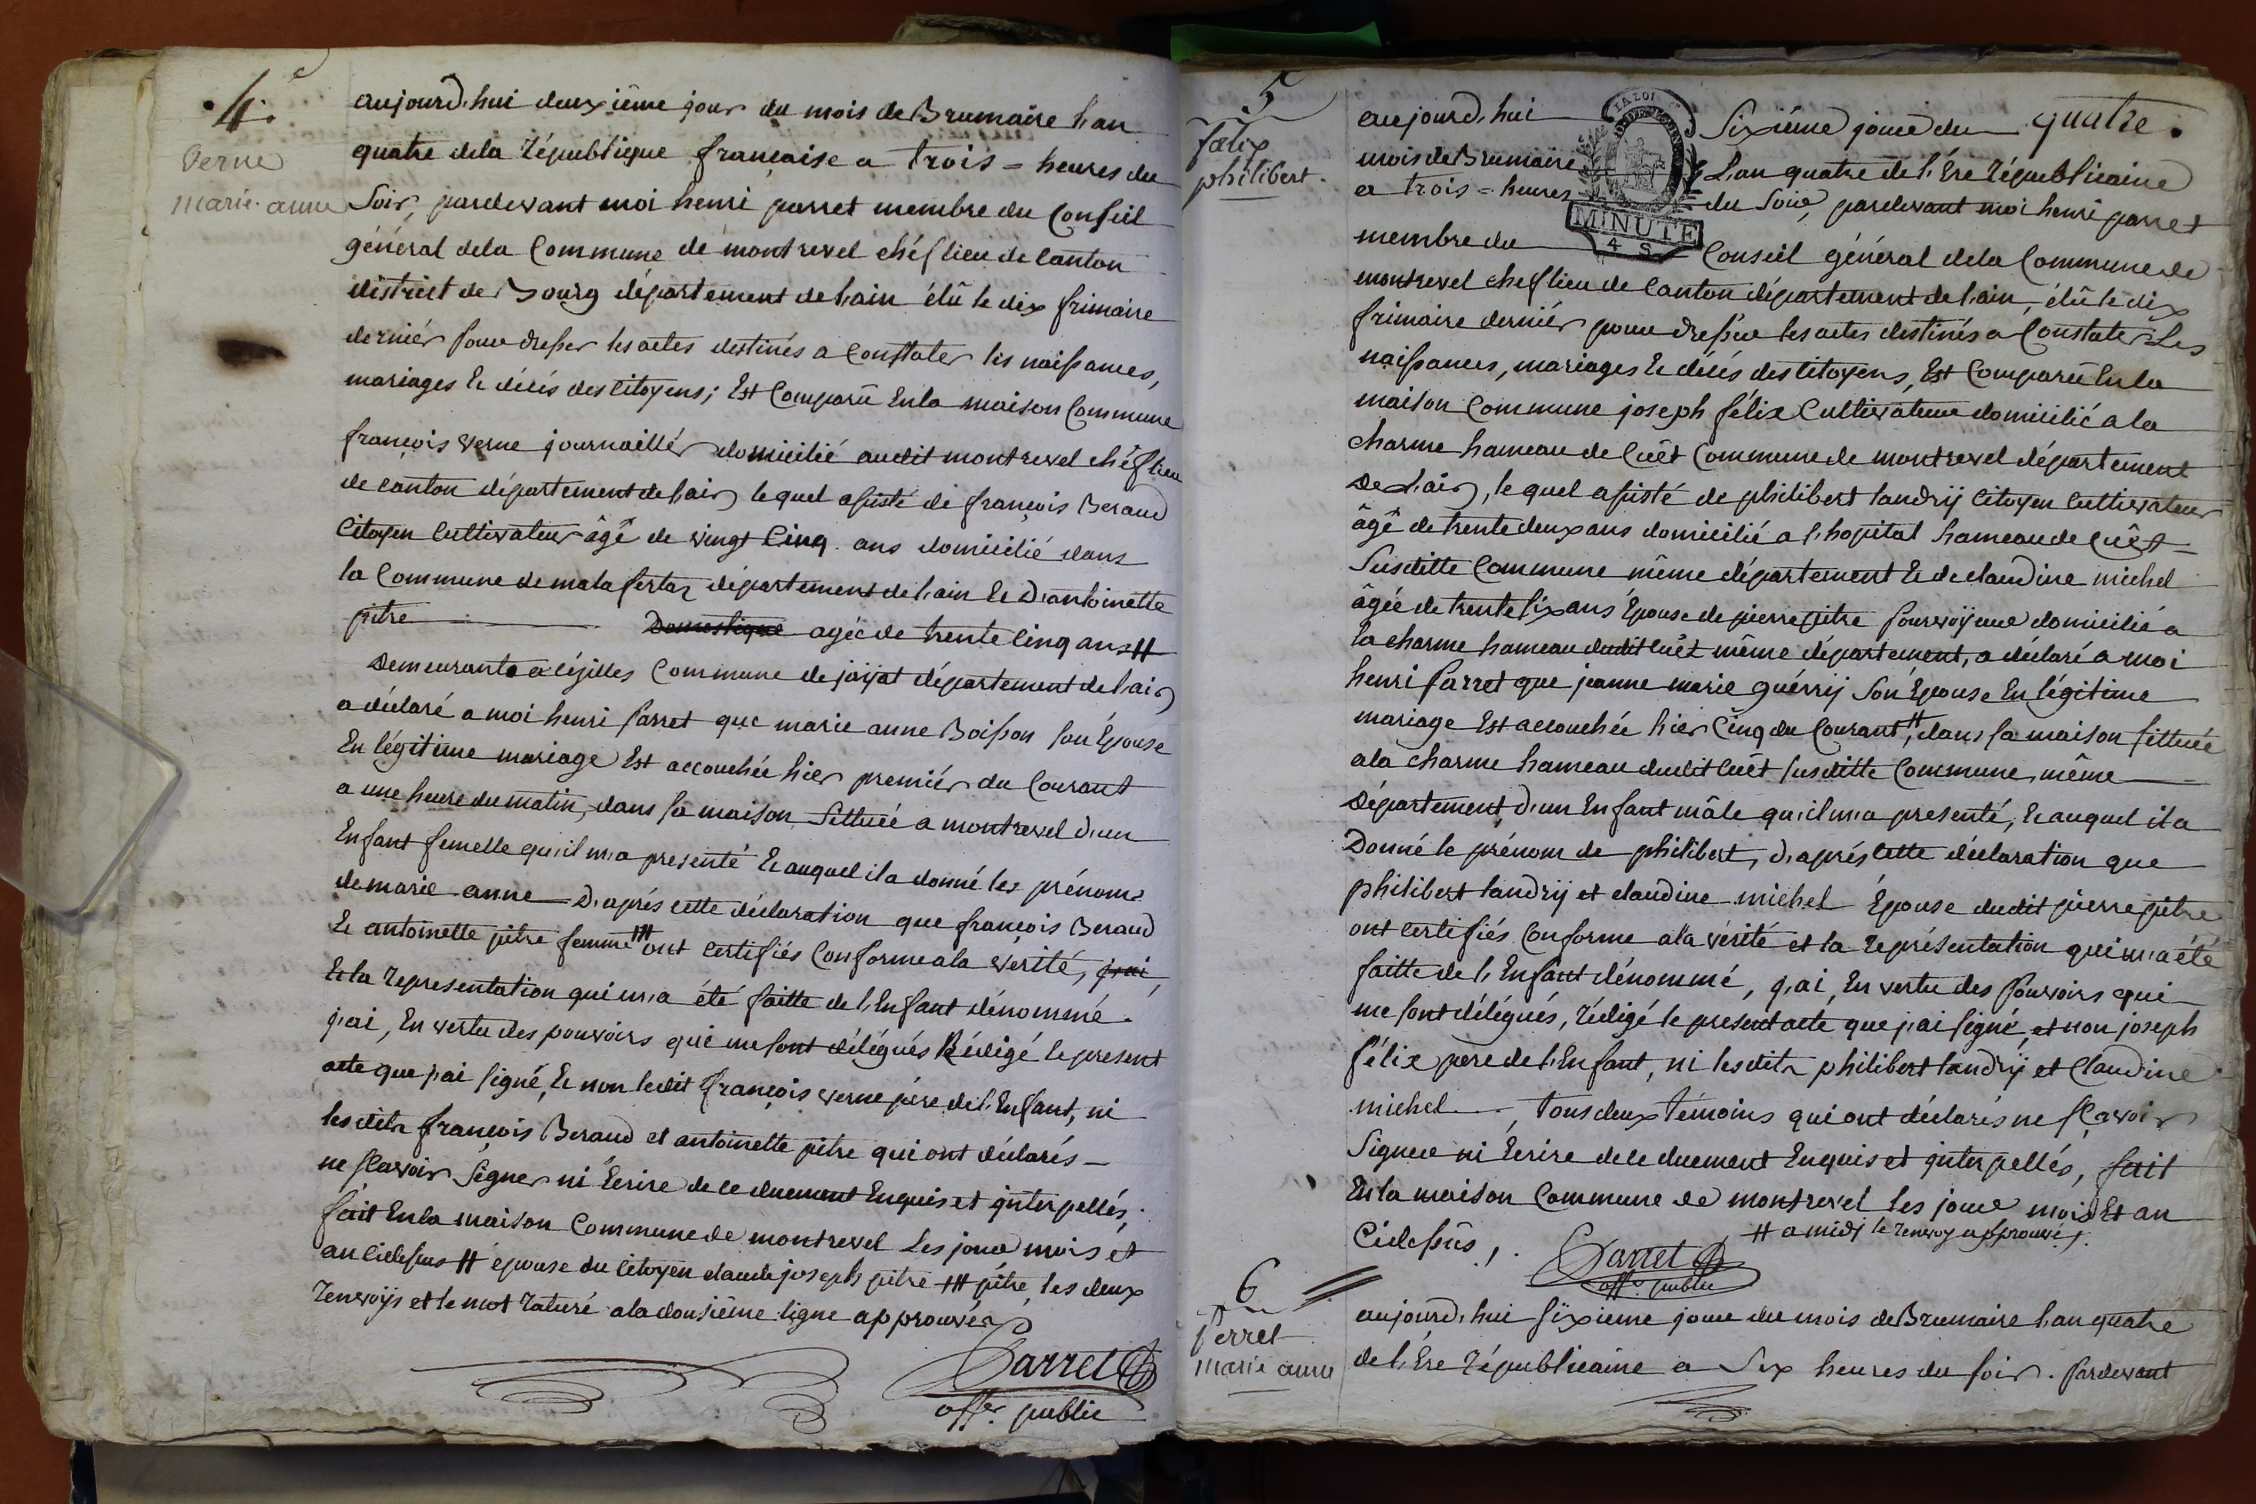 4e.
Verne
marie-anne
aujourd'hui deuxième jour du mois de Brumaire l'an
quatre dela République française a trois = heures du
Soir, pardevant moi henri parret membre du Conseil
général dela Commune de montrevel chéf lieu de Canton
district de Bourg département de l'ain élû le dix frimaire
derniér pour dresser les actes destinés a Constater les naissances,
mariages & décés des Citoyens; Est Comparû En la maison Commune
françois verne journaillér domicilié audit montrevel chéf lieu
de canton département de l'ain, lequel assisté de françois Beraud
Citoyen Cultivateur âgê de vingt Cinq ans domicilié dans
la Commune de malafertaz département de l'ain & D'antoinette
pitre Domestique agée de trente Cinq ans #
Demeurante a Cézilles Commune de jayat département de l'ain,
a déclaré a moi henri parret que marie anne Boisson son Epouse
En légitime mariage Est accouchée hier premiér du Courant
a une heure du matin, dans sa maison Sittuée a montrevel d'un
Enfant femelle qu'il m'a presenté & auquel il a donné les prénoms
de marie-anne D'aprés cette déclaration que françois Beraud
& antoinette pitre femme ## ont certifiés Conforme a la vérité, j'ai,
& la representation qui m'a été faitte de l'Enfant dénommé.
j'ai, En vertu des pouvoirs qui me sont délégués Rédigé le present
acte que j'ai signé, & non ledit françois verne pére de l'Enfant, ni
lesdits françois Beraud et antoinette pitre qui ont déclarés
ne sçavoir Signer ni Ecrire de ce duement Enquis et jnterpellés,
fait En la maison Commune de montrevel Les jour mois et
an cidessus # épouse du Citoyen claude joseph pitre ## pitre, les deux
renvoys et le mot raturé a la dousième ligne approuvés
Parret
offer. public
5
fælix
philibert.
quatre.
aujourd'hui Sixiéme jour du
mois de Brumaire L'an quatre de l'Ere Républicaine
a trois = heures du Soir, pardevant moi henri parret
membre du Conseil général dela Commune de
LA LOI
MINUTE
4 S
montrevel chef lieu de Canton département de l'ain, élû le dix
frimaire derniér pour dresser les actes destinés a Constater Les
naissances, mariages & décés des Citoyens, Est Comparû En la
maison Commune joseph félix Cultivateur domicilié a la
charme hameau de Cuêt Commune de montrevel département
De L'ain, lequel assisté de philibert landrÿ Citoyen Cultivateur
âgê de trente deux ans domicilié a l'hopital hameau de Cuêt
Susditte Commune même département & de claudine michel
âgée de trente six ans Epouse de pierre pitre pourvoÿeur domicilié a
la charme hameau dudit Cuêt même département, a déclaré a moi
henri parret que jeanne marie guérrÿ Son Epouse En légitime
mariage Est accouchée hier Cinq du Courant #, dans sa maison sittuée
a la charme hameau dudit Cuêt susditte Commune, même
Département, d'un Enfant mâle qu'il m'a presenté, & auquel il a
Donné le prénom de philibert, d'aprés cette déclaration que
philibert landrÿ et claudine michel Epouse dudit pierre pitre
ont certifiés Conforme a la vérité et la représentation qui m'a été
faitte de l'Enfant dénommé, j'ai, En vertu des pouvoirs qui
me sont délégués, rédigé le present acte que j'ai signé, et non joseph
félix pere de l'Enfant, ni lesdits philibert landrÿ et Claudine
michel, tous deux témoins qui ont déclarés ne sçavoir
Signer ni Ecrire de ce duement Enquis et jnterpellés, fait
En la maison Commune de montrevel les jour mois Et an
Cidessûs, . # a midj le renvoy approuvé,.
Parret
offr. public
6
ferret
marie anne
aujourd'hui sixieme jour du mois de Brumaire l'an quatre
de l'Ere républicaine a Six heures du soir. pardevant